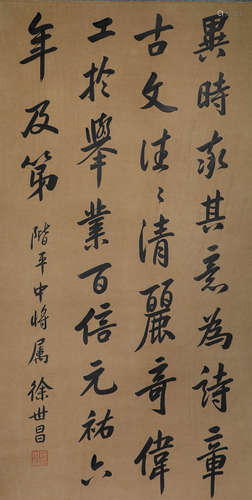 異時取其意為詩章
古文往〻清麗奇偉
工於舉業百倍元祐六
年及第
階平中將屬 徐世昌